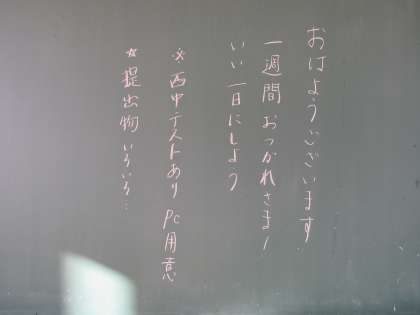 おはようございます。
一週間おつかれさま！
いい一日にしよう
※西中テストあり PC用意
☆提出物いろいろ…